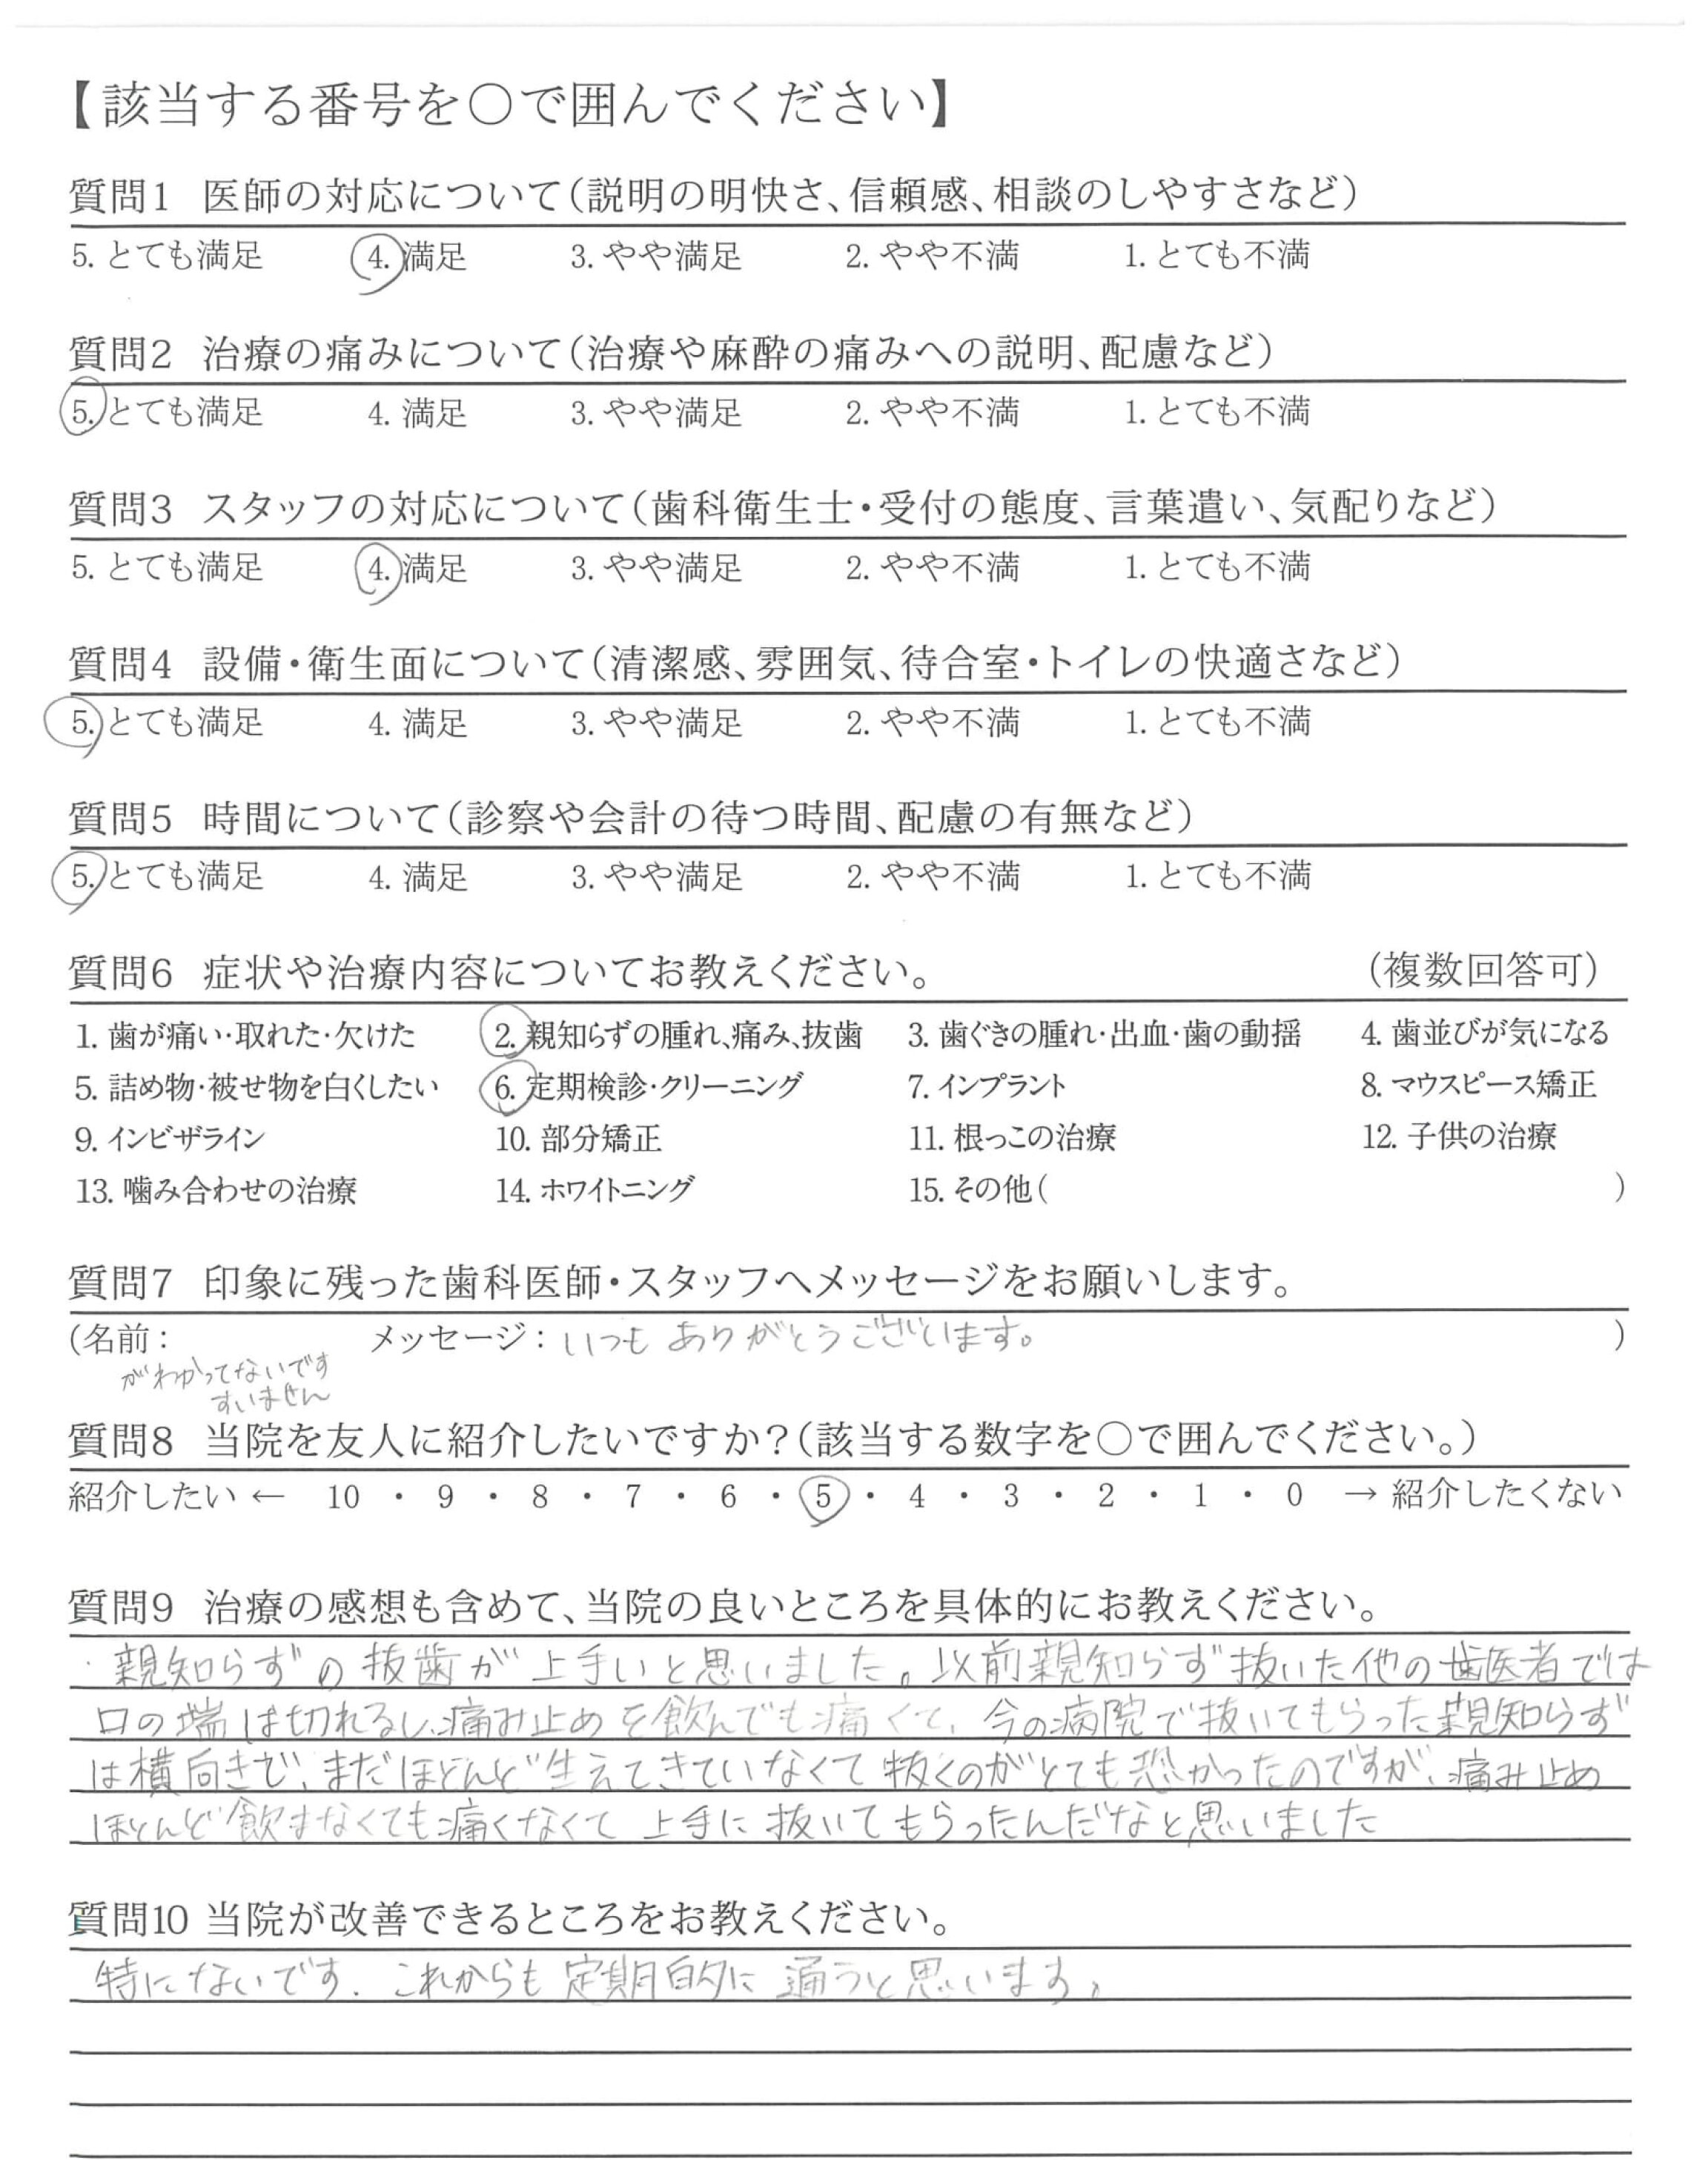 【該当する番号を〇で囲んでください】
質問1 医師の対応について(説明の明快さ、信頼感、相談のしやすさなど)
5. とても満足 4. 満足 3. やや満足 2. やや不満 1. とても不満
質問2 治療の痛みについて(治療や麻酔の痛みへの説明、配慮など)
5. とても満足 4. 満足 3. やや満足 2. やや不満 1. とても不満
質問3 スタッフの対応について(歯科衛生士・受付の態度、言葉遣い、気配りなど)
5. とても満足 4. 満足 3. やや満足 2. やや不満 1. とても不満
質問4 設備・衛生面について(清潔感、雰囲気、待合室・トイレの快適さなど)
5. とても満足 4. 満足 3. やや満足 2. やや不満 1. とても不満
質問5 時間について(診察や会計の待つ時間、配慮の有無など)
5. とても満足 4. 満足 3. やや満足 2. やや不満 1. とても不満
質問6 症状や治療内容についてお教えください。 (複数回答可)
1. 歯が痛い・取れた・欠けた 2. 親知らずの腫れ、痛み、抜歯 3. 歯ぐきの腫れ・出血・歯の動揺 4. 歯並びが気になる
5. 詰め物・被せ物を白くしたい 6. 定期検診・クリーニング 7. インプラント 8. マウスピース矯正
9. インビザライン 10. 部分矯正 11. 根っこの治療 12. 子供の治療
13. 噛み合わせの治療 14. ホワイトニング 15. その他( )
質問7 印象に残った歯科医師・スタッフへメッセージをお願いします。
(名前: メッセージ: いつも ありがとうございます。 )
がわかってないです
すいません
質問8 当院を友人に紹介したいですか?(該当する数字を〇で囲んでください。)
紹介したい ← 10 ・ 9 ・ 8 ・ 7 ・ 6 ・ 5 ・ 4 ・ 3 ・ 2 ・ 1 ・ 0 → 紹介したくない
質問9 治療の感想も含めて、当院の良いところを具体的にお教えください。
・親知らずの抜歯が上手いと思いました。以前親知らず抜いた他の歯医者では
口の端は切れるし、痛み止めを飲んでも痛くて、今の病院で抜いてもらった親知らず
は横向きで、まだほとんど生えてきていなくて抜くのがとても恐かったのですが、痛み止め
ほとんど飲まなくても痛くなくて上手に抜いてもらったんだなと思いました
質問10 当院が改善できるところをお教えください。
特にないです。これからも定期的に通うと思います。